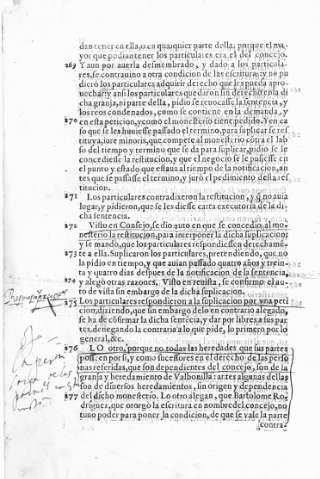 dan tener en ella, o en qualquier parte della, porque el ma-
yor que podian tener los particulares era el del concejo.
269 Y aun por auerla desmembrado, y dado a los particula-
res, se contrauino a otra condicion de las escrituras, y no pu
diero los particulares adquirir derecho que les pueda apro-
uechar, y ansi los particulares que dieron sin derecho en la di
cha granja, ni parte della, pidio se reuocasse la sentencia, y
los reos condenados, como se contiene en la demanda, y
270 en esta peticion, y como el monesterio tiene pedido. Y en ca
so que se les huuiesse passado el termino, para suplicar se res
tituya, iure minoris, que compete al monesterio cótra el lab
so del tiempo y termino que se da para suplicar, pidio se le
concediesse la restitucion, y que el negocio se le pusiesse en
el punto y estado que estaua al tiempo de la notificacion, an
tes que se passasse el termino, y juró el pedimiento desta res
titucion.
271 Los particulares contradixeron la restitucion, y q̃ no auia
lugar, y pidieron, que se les diesse carta executoria de la di-
cha sentencia.
272 Visto en Consejo, se dio auto en que se concedio al mo-
nesterio la restitucion, para interponer la dicha suplicacion:
y se mandó, que los particulares respondiessen derechamé-
273 te a ella. Suplicaron los particulares, pretendiendo, que no
la pidio en tiempo, y que auian passado quatro años y trein-
ta y quatro dias despues de la notificacion de la sentencia,
274 y alegó otras razones. Visto en reuista, se confirmo el au-
to de vista sin embargo de la dicha suplicacion.
275 Los particulares respondieron a la suplicacion por vna peti
cion, diziendo, que sin embargo de lo en contrario alegado,
se ha de cõfirmar la dicha sentencia, y dar por libres a sus par
tes, denegando la contrario a lo que pide, lo primero por lo
general, &c.
276 LO otro, porque no todas las heredades que sus partes
poss. en por si, y como sucessores en el derecho de las perso
nas referidas, que son dependientes del concejo, son de la
granja y heredamiento de Valbonilla: antes algunas dellas
son de diuersos heredamientos, sin origen y dependencia
277 del dicho monesterio. Lo otro alegan, que Bartolome Ro-
driguez, que otorgò la escritura en nombre del concejo, no
tuuo poder para poner la condicion, de que se vale la parte
contra-